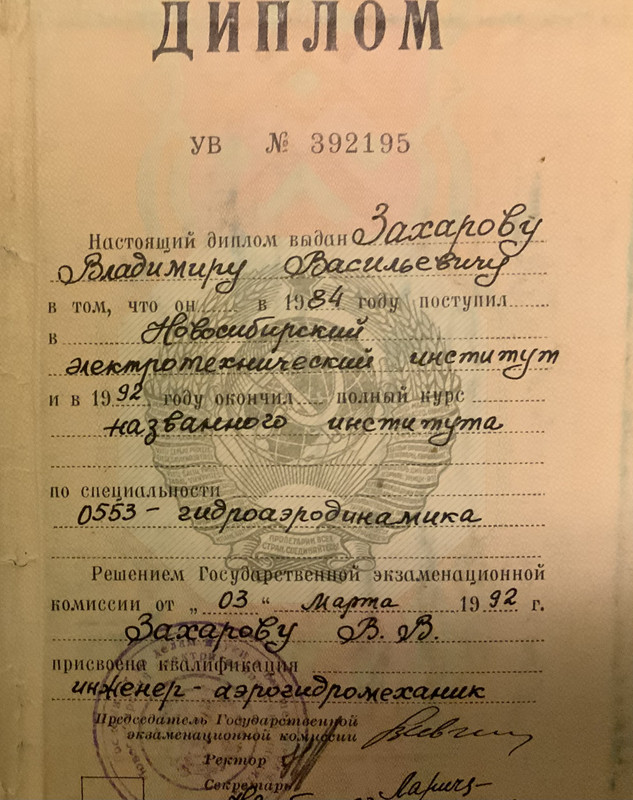 ДИПЛОМ
УВ № 392195
Настоящий диплом выдан Захарову
Владимиру Васильевичу
в том, что он в 1984 году поступил
в Новосибирский
электротехнический институт
и в 1992 году окончил полный курс
названного института
по специальности
0553 - гидроаэродинамика
Решением Государственной экзаменационной
комиссии от „03“ марта 1992 г.
Захарову В. В.
присвоена квалификация
инженер-аэрогидромеханик
Председатель Государственной
экзаменационной комиссии
Ректор
Секретарь